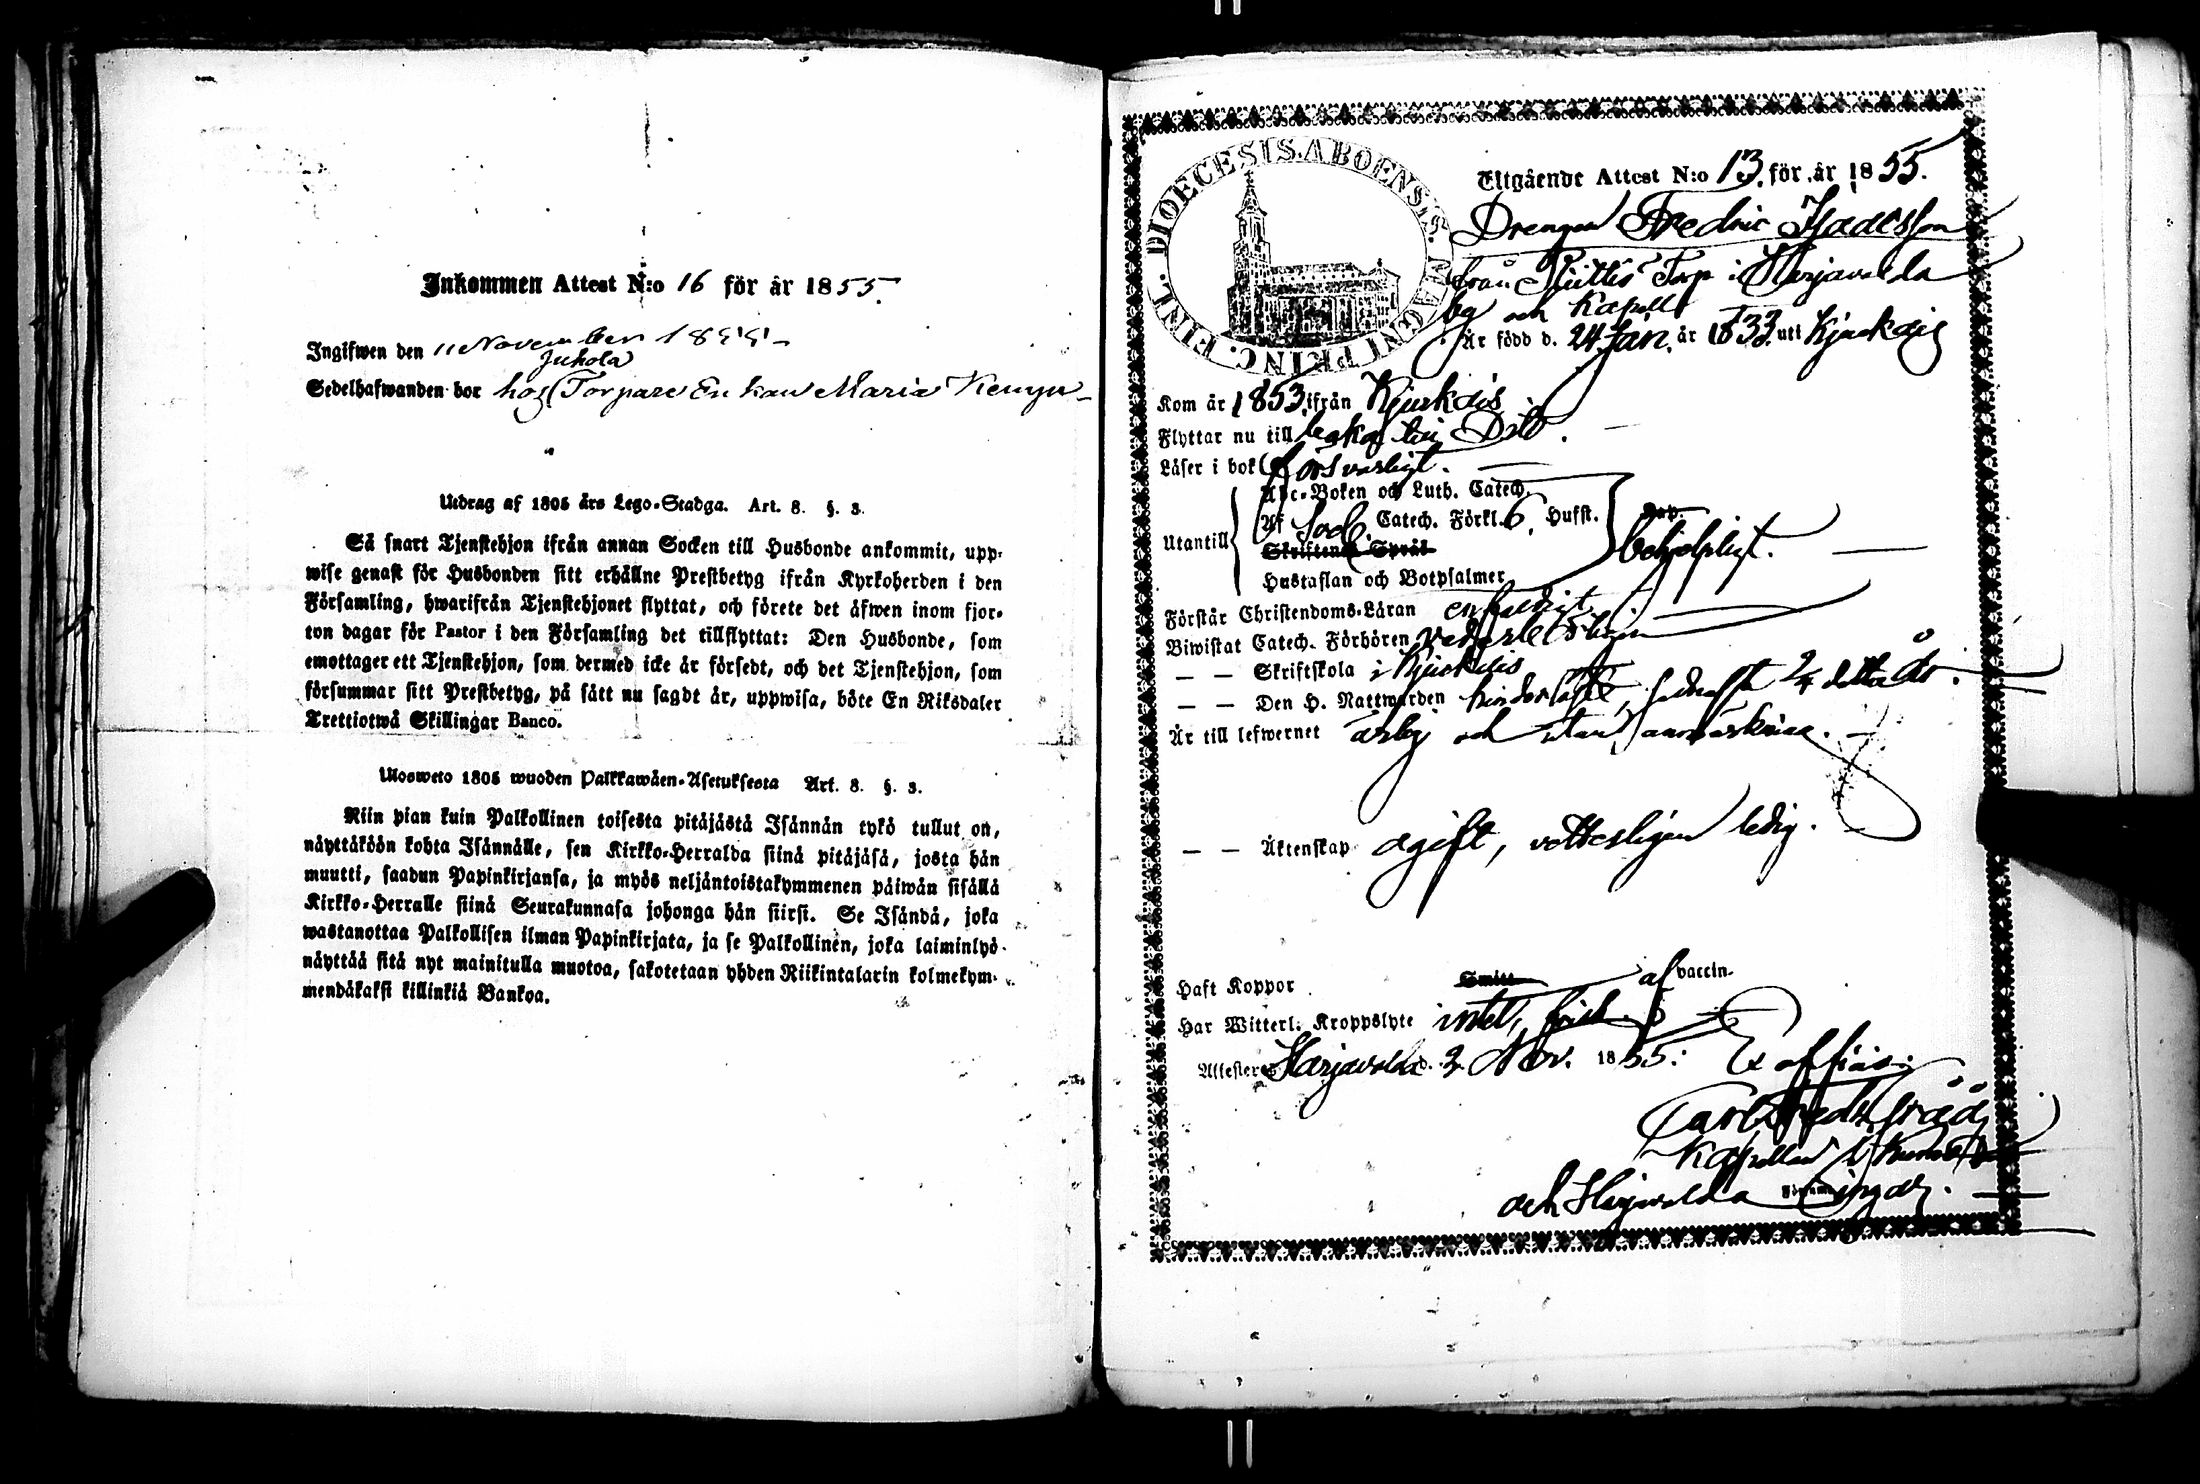 Inkommen Attest N:o 16 för år 1855.
Ingifwen den 11 November 1855
Juhola
Sedelhafwanden bor hos Torpare En kan Maria
Utdrag af 1805 års Lego-Stadga. Art. 8. §. 3.
Så snart Tjenstehjon ifrån annan Socken till Husbonde ankommit, upp-
wise genast för Husbonden sitt erhållne Prestbetyg ifrån Kyrkoherden i den
Församling, hwarifrån Tjenstehjonet flyttat, och förete det äfwen inom fjor-
ton dagar för Pastor i den Församling det tillflyttat: Den Husbonde, som
emottager ett Tjenstehjon, som dermed icke är försedt, och det Tjenstehjon, som
försummar sitt Prestbetyg, på sätt nu sagdt är, uppwisa, böte En Riksdaler
Trettiotwå Skillingar Banco.
Ulosweto 1805 wuoden Palkkawäen-Asetuksesta Art. 8. §. 3.
Niin pian kuin Palkollinen toisesta pitäjästä Isännän tykö tullut on,
näyttäköön kohta Isännälle, sen Kirkko-Herralda siinä pitäjäsä, josta hän
muutti, saadun Papinkirjansa, ja myös neljäntoistakymmenen päiwän sisällä
Kirkko-Herralle siinä Seurakunnasa johonga hän siirsi. Se Isändä, joka
wastanottaa Palkollisen ilman Papinkirjata, ja se Palkollinen, joka laiminlyö
näyttää sitä nyt mainitulla muotoa, sakotetaan yhden Riikintalarin kolmekym-
mendäkaksi killinkiä Bankoa.
FINL. DIOECESIS ABOENSIS. MAGNI PRINC.
Utgående Attest N:o 13. för år 1855.
Drengen Fredric Isacsson
från Torp i Harjavalda
by och Kapell
Är född d. 24 Jan. år 1833. uti Kjuckais
Kom år 1853 ifrån Kjuckais
Flyttar nu till baka till Dito.
Läser i bok försvarligt.
Utantill
Abc-Boken och Luth. Catech.
Af Catech. Förkl. 6. Hufst.
Skriftenes Språk
Hustaflan och Botpsalmer
behjelpligt.
Förstår Christendoms-Läran enfaldigt
Biwistat Catech. Förhören vederbörligen
— — Skriftskola i Kjuckais
— — Den H. Nattwarden sednast 2/4 detta år.
Är till lefwernet ärlig och utan anmärkning.
— — Äktenskap ogift, ledig.
Haft Koppor Smitt- af vaccin-
Har Witterl. Kroppslyte intet, frisk.
Attesteras Harjavalda d. 2 Nov. 1855: Ex officio:
Carl Fredr.
Kapellan i
och Harjavalda